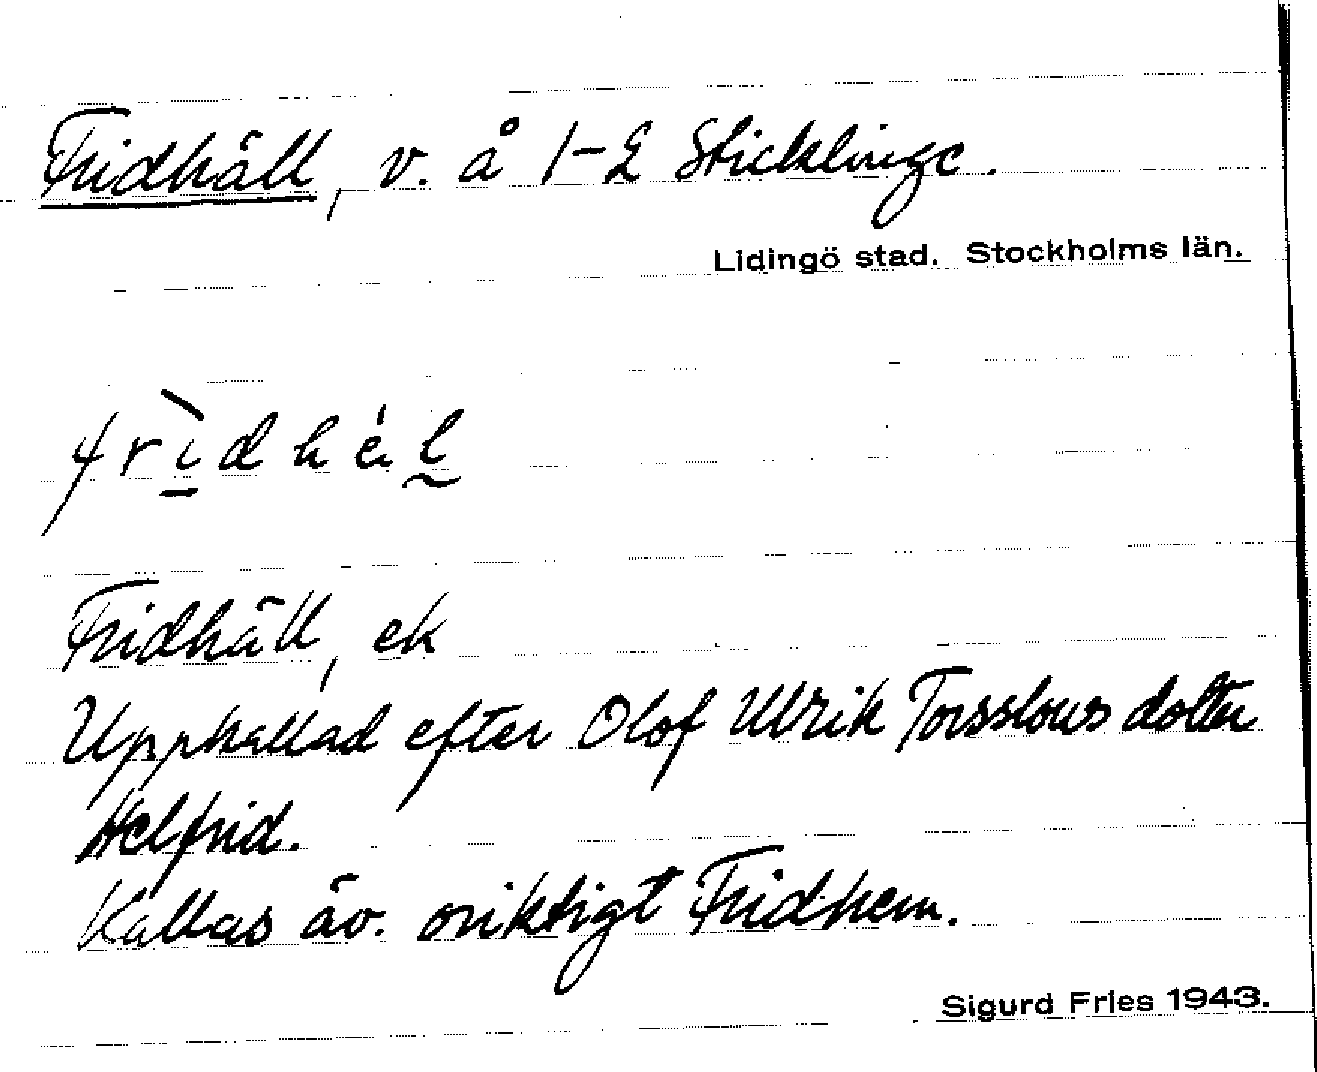 Fridhäll, v. å 1-2 Sticklinge.
Lidingö stad. Stockholms län.
frìdhál
Fridhäll, ek
Uppkallad efter Olof Ulrik Torsslows dotter
Helfrid.
Kallas äv. oriktigt Fridhem.
Sigurd Fries 1943.